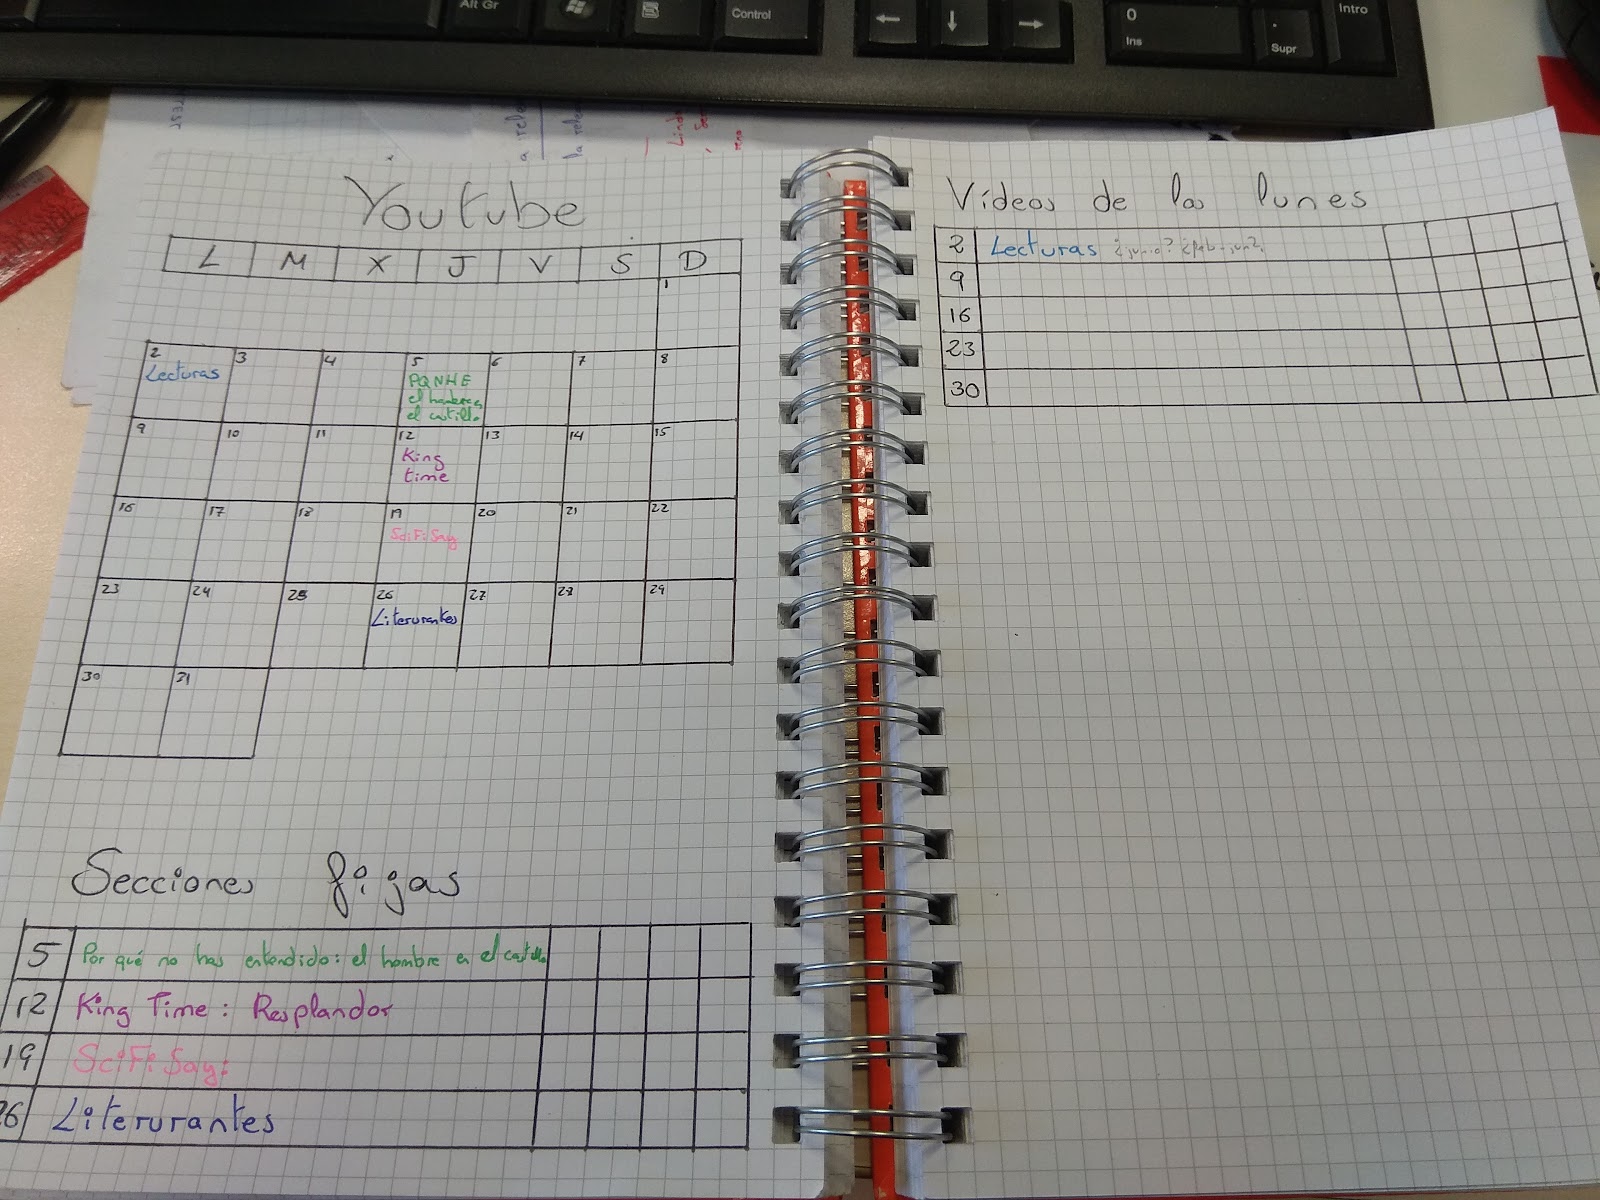 Alt Gr
Control
0
Ins
.
Supr
Intro
Youtube
L M X J V S D
1
2 3 4 5 6 7 8
Lecturas
PQNHE
el hombre en
el castillo
9 10 11 12 13 14 15
King
time
16 17 18 19 20 21 22
SciFiSay
23 24 25 26 27 28 29
Literurantes
30 31
Secciones fijas
5 Por qué no has entendido: el hombre en el castillo
12 King Time: Resplandor
19 SciFiSay:
26 Literurantes
Vídeos de los lunes
2 Lecturas ¿junio? ¿feb-jun?
9
16
23
30